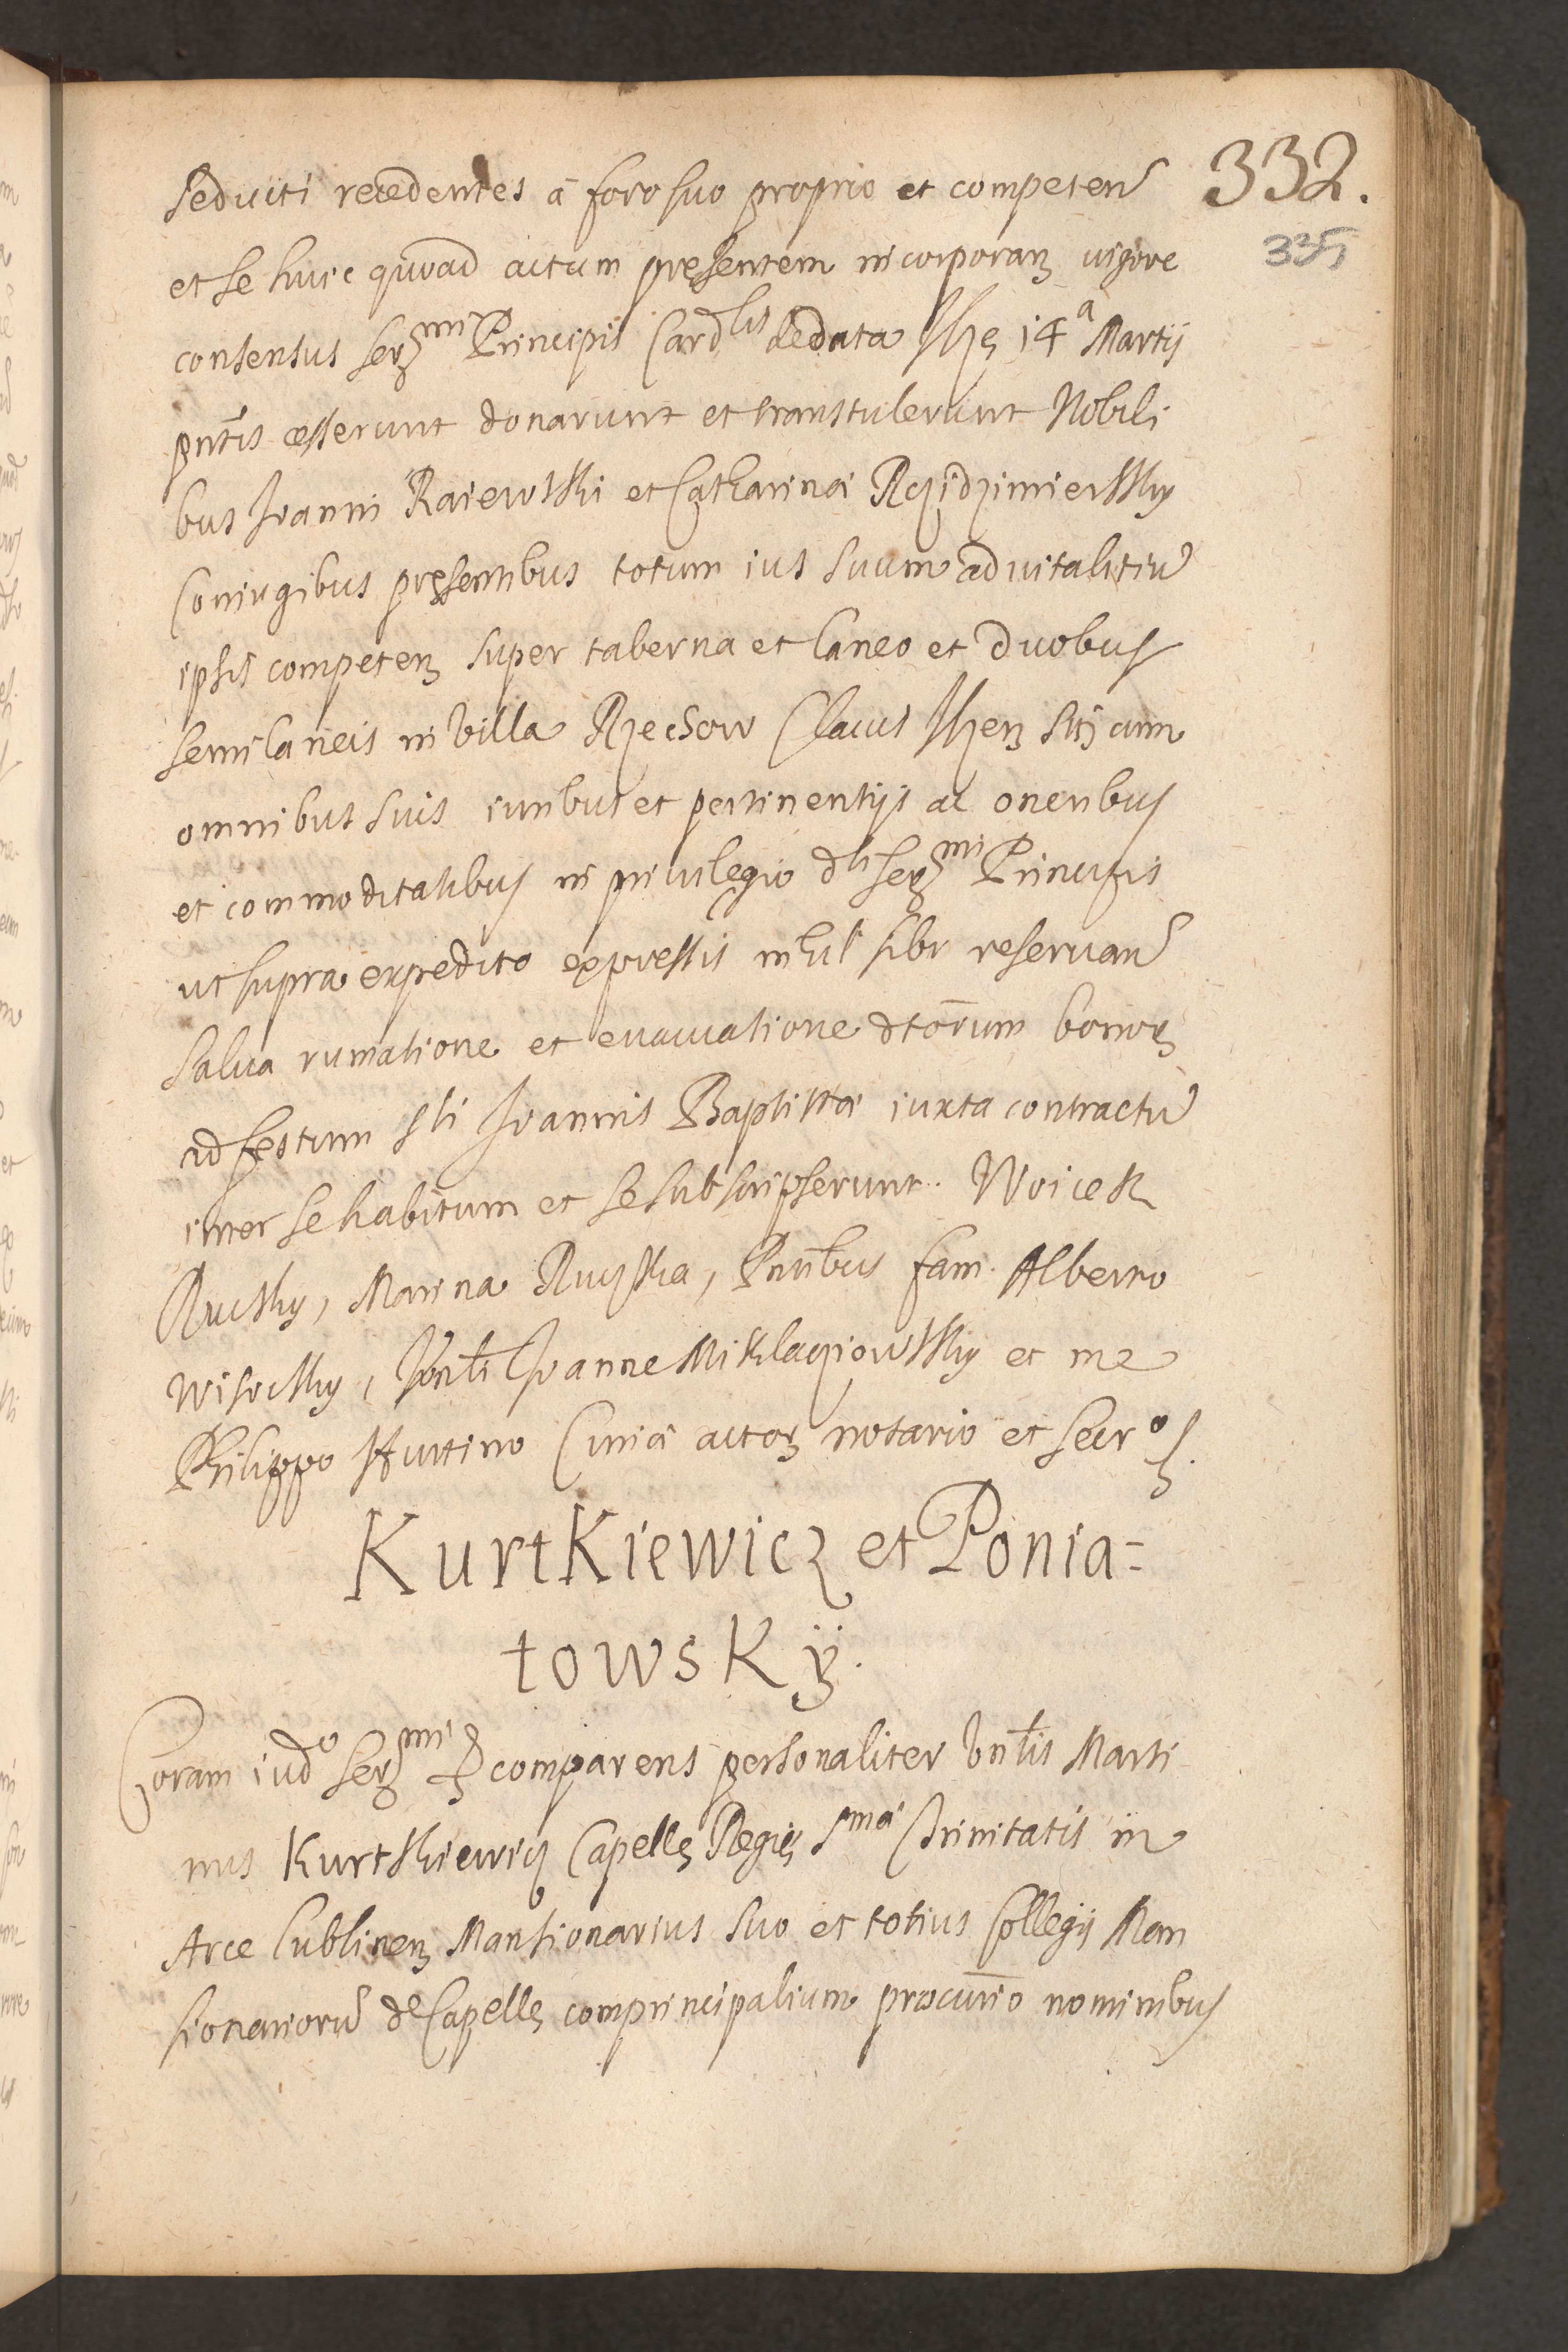 332.
335
seducti recedentes à foro suo proprio et competenȝ
et se huic quoad actum pręsentem incorporanȝ vigore
consensus serȝmi Principis Cardlis de data 14a Martij
pñtis cesserunt donarunt et transtulerunt Nobili
bus Joanni Raiewski et Catharinæ
Coniugibus pręsentibus totum ius suum aduitalitiũ
ipsis competenȝ super taberna et laneo et duobus
semilaneis in villa Rzeczow Clauis sitȝ cum
omnibus suis iuribus et pertinentijs ac oneribus
et commoditatibus in priuilegio dti serȝmi Principis
ut supra expedito expressis nihil sibi reseruanȝ
salua rumatione et euacuatione dtorum bonorȝ
ad festum sti Joannis Baptistæ iuxta contractũ
inter se habitum et se subscripserunt. Woicek
Rucsky, Marina Ruczka, Pntibus fam. Alberto
Wisocky, Joanne Miklaczowsky et me
Philippo Huttino Curiæ actorȝ notario et secro
Kurtkiewicz et Ponia=
towskÿ.
Coram iudo serȝmi comparens personaliter Vnłis Marti
nus Kurtkiewicz Capellę Regię Smæ Trinitatis in
Arce Lublinenȝ Mansionarius suo et totius Collegij Man
sionariorũ de Capellę comprincipalium procurio nominibus